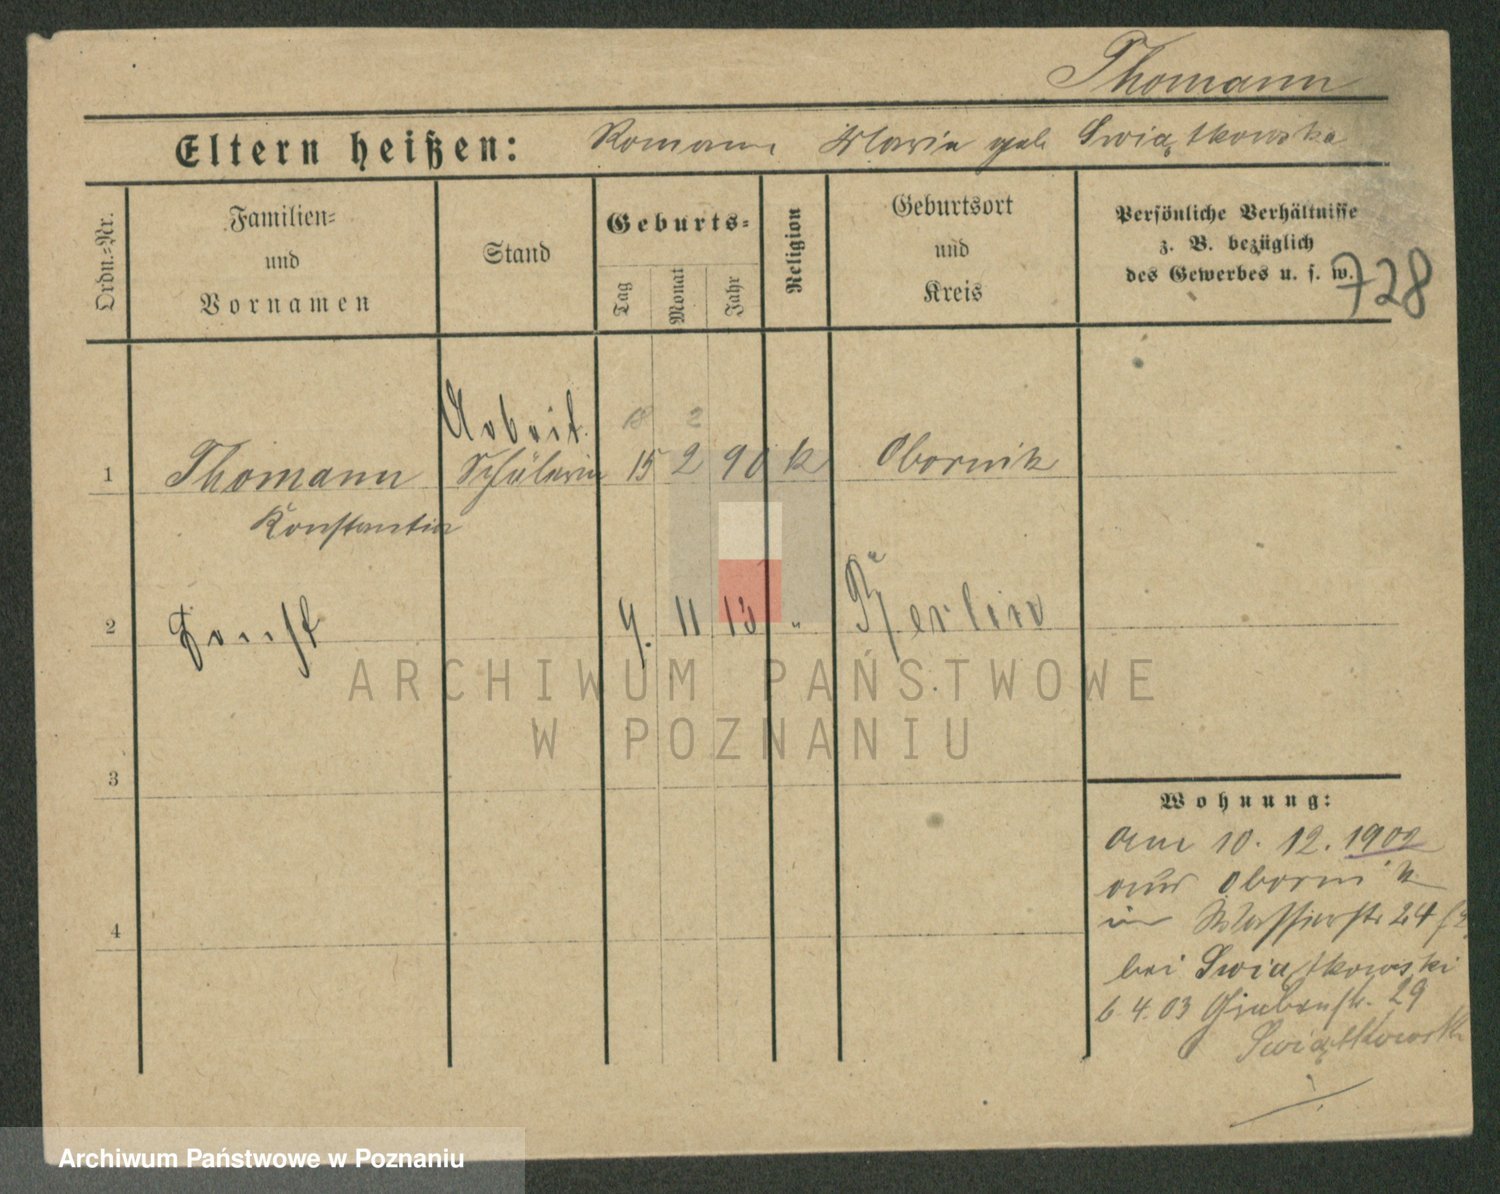 Thomann
Eltern heißen: Roman, Maria geb. Świątkowska
Ordn.-Nr.
Familien-
und
Vornamen
Stand
Geburts-
Tag
Monat
Jahr
Religion
Geburtsort
und
Kreis
Persönliche Verhältnisse
z. B. bezüglich
des Gewerbes u. s. w.
728
Arbeit.
18 2
1 Thomann Schülerin 15 2 90 k Obornik
Konstantia
2 Ernst 9. 11 13 " Berlin
ARCHIWUM PAŃSTWOWE
W POZNANIU
3
Wohnung:
am 10. 12. 1902
aus Obornik
in 24
4
bei Świątkowski
6. 4. 03 Grabenstr. 29
Świątkowski
Archiwum Państwowe w Poznaniu